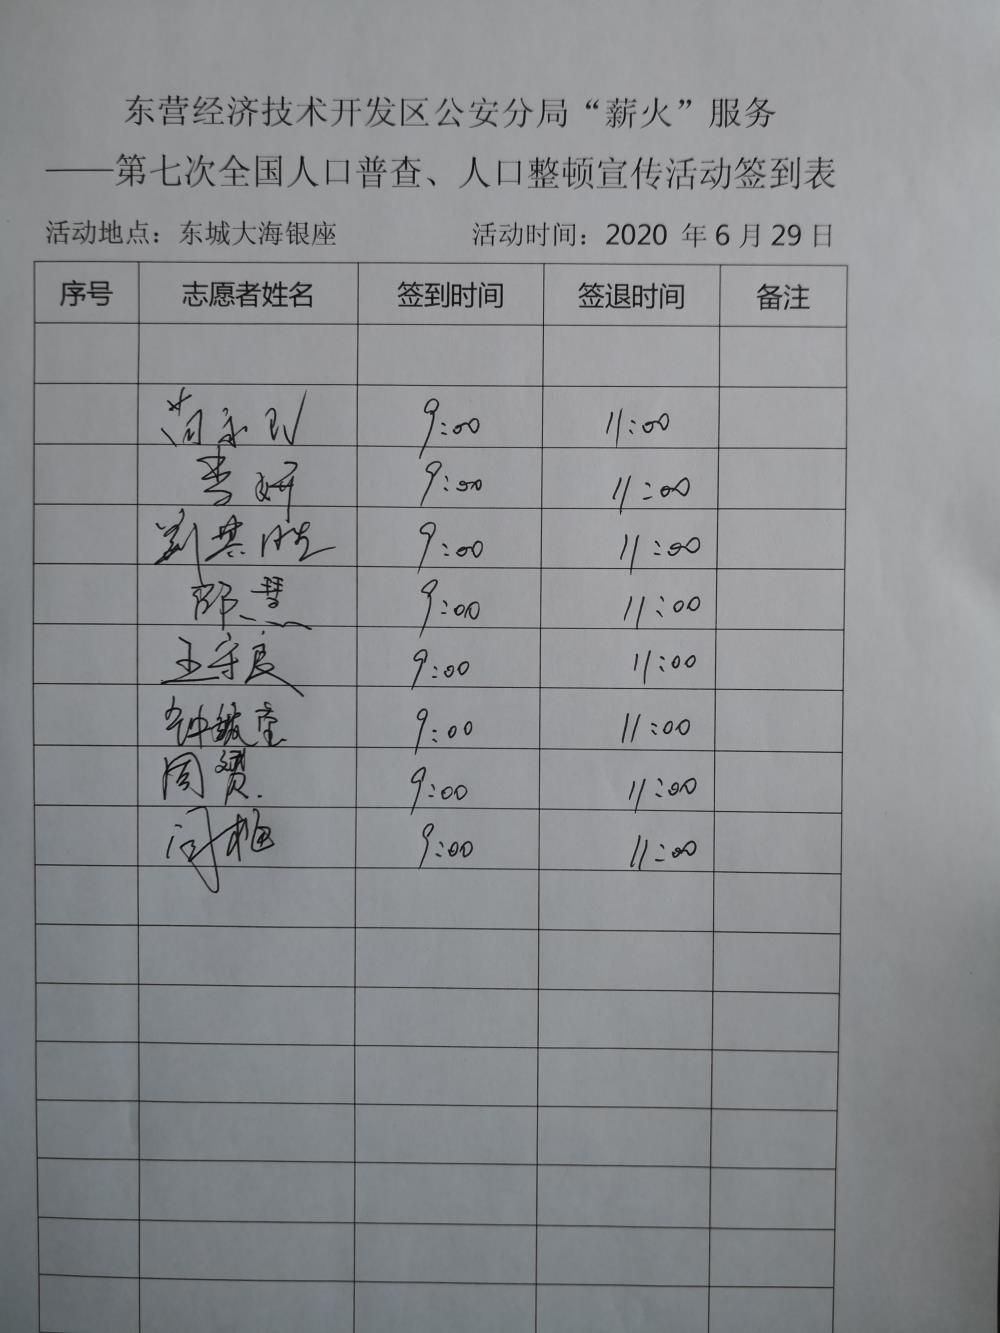 东营经济技术开发区公安分局“薪火”服务
——第七次全国人口普查、人口整顿宣传活动签到表
活动地点：东城大海银座 活动时间：2020 年 6 月 29 日
序号 志愿者姓名 签到时间 签退时间 备注
9:00 11:00
李妍 9:00 11:00
刘其胜 9:00 11:00
邵慧 9:00 11:00
王守良 9:00 11:00
钟敏 9:00 11:00
周赟 9:00 11:00
闫梅 9:00 11:00